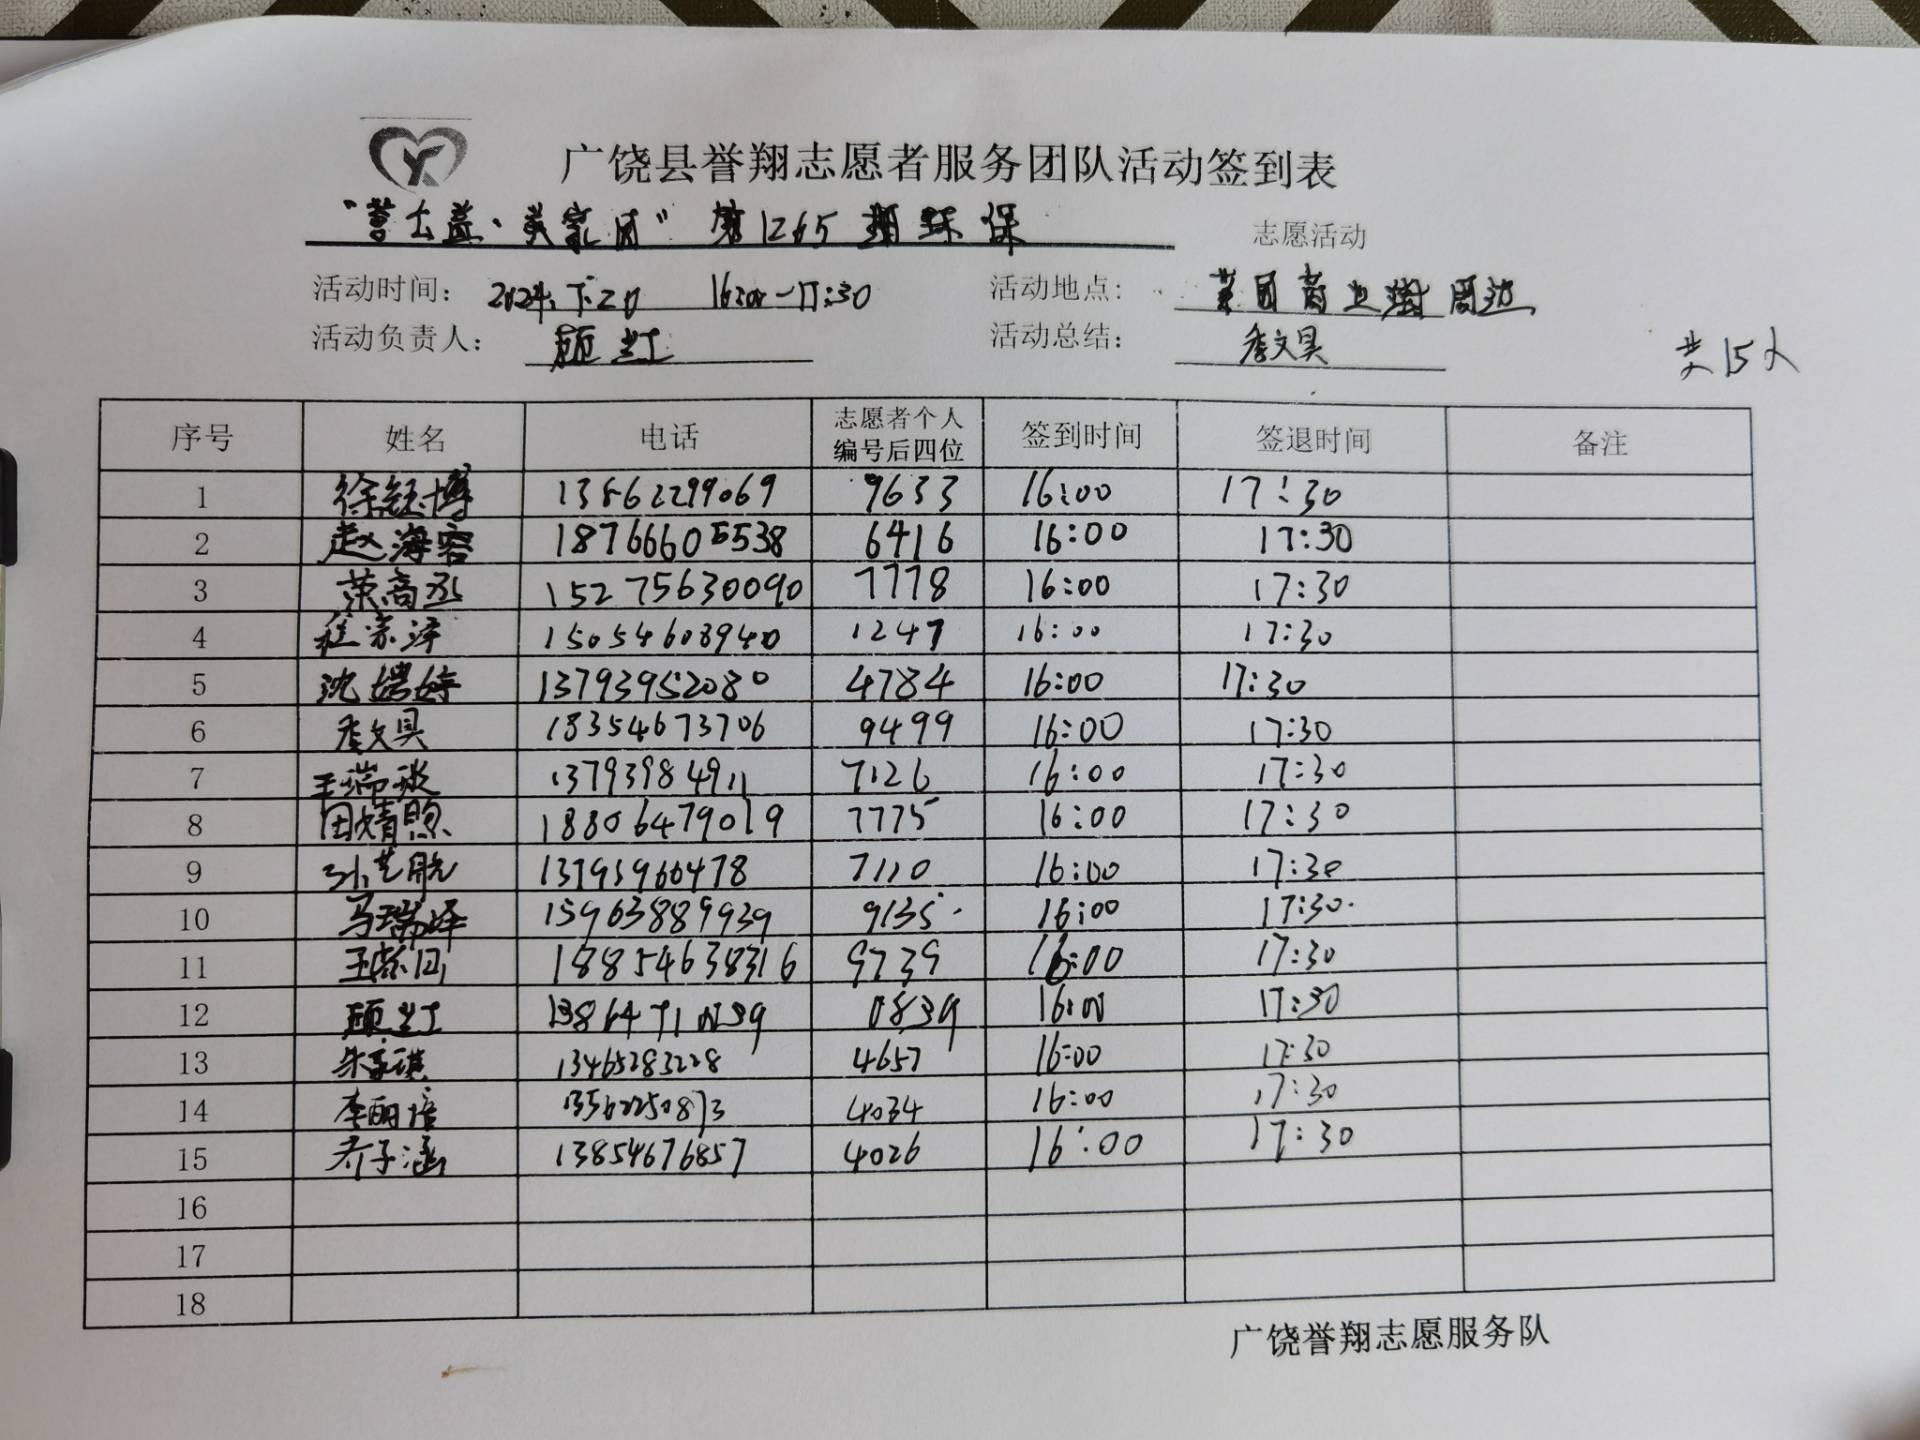 广饶县誉翔志愿者服务团队活动签到表
第1265期环保 志愿活动
活动时间： 16:00-17:30 活动地点： 商业街周边
活动负责人： 顾红 活动总结： 李文昊
共15人
序号 姓名 电话 志愿者个人编号后四位 签到时间 签退时间 备注
1 徐钰博 13862299069 9633 16:00 17:30
2 赵海容 18766605538 6416 16:00 17:30
3 荣高丞 15275630090 7778 16:00 17:30
4 程宗泽 15054608940 1247 16:00 17:30
5 沈 13793952080 4784 16:00 17:30
6 李文昊 18354673706 9499 16:00 17:30
7 王瑞琰 13793984911 7126 16:00 17:30
8 田婧煦 18806479019 7775 16:00 17:30
9 孙艺航 7110 16:00 17:30
10 马瑞泽 15963889939 9135 16:00 17:30
11 王 18854638316 9739 16:00 17:30
12 顾红 0839 16:00 17:30
13 朱 13465283228 4657 16:00 17:30
14 李 4034 16:00 17:30
15 乔子涵 13854676857 4026 16:00 17:30
16
17
18
广饶誉翔志愿服务队